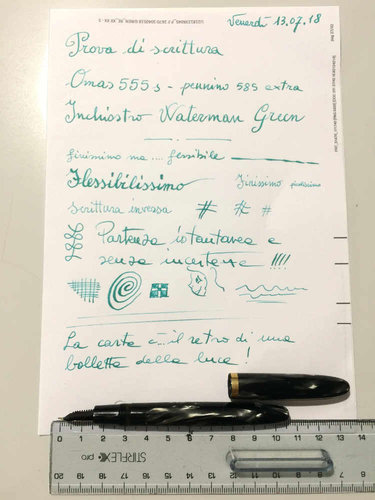 Venerdì 13.07.18
Prova di scrittura
Omas 555 s - pennino 585 extra
Inchiostro Waterman Green
finissimo ma .... flessibile
Flessibilissimo
Finissimo
scrittura inversa # # #
Partenza istantanea e
senza incertezze !!!!
La carta è... il retro di una
bolletta della luce !
0 1 2 3 4 5 6 7 8 9 10 11 12 13 14
STIRFLEX pro
20 19 18 17 16 15 14 13 12 11 10 9 8 7 6